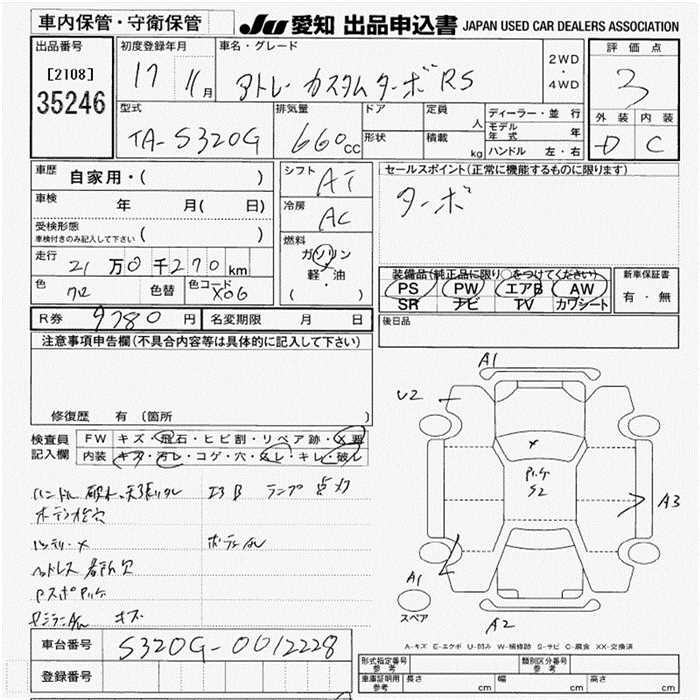 車内保管・守衛保管
JU 愛知 出品申込書 JAPAN USED CAR DEALERS ASSOCIATION
出品番号
[2108]
35246
初度登録年月
17 11月
車名・グレード
アトレー カスタムターボRS
2WD
・
4WD
評価点
3
外装 内装
D C
型式
TA-S320G
排気量
660cc
ドア
形状
定員
人
積載
kg
ディーラー・並行
モデル年式 年
ハンドル 左・右
車歴
自家用・( )
車検
年 月( 日)
受検形態
車検付きのみ記入して下さい ( )
走行
21万0千270km
色
色替
色コード X06
シフト
AT
冷房
AC
燃料
ガソリン
軽・油
( )
セールスポイント(正常に機能するものに限ります)
ターボ
装備品(純正品に限り○をつけてください)
PS PW エアB AW
SR ナビ TV カワシート
新車保証書
有・無
R券 9780円
名変期限 月 日
後日品
注意事項申告欄(不具合内容等は具体的に記入して下さい)
修復歴 有 (箇所 )
検査員記入欄
FW キズ・飛石・ヒビ割・リペア跡・X要
内装 キズ・汚レ・コゲ・穴・スレ・キレ・破レ
エアB ランプ点灯
バッテリーX
キズ
A1
U2
X
S2
A3
A1
スペア
A2
A-キズ E-エクボ U-凹み W-補修跡 S-サビ C-腐食 XX-交換済
車台番号
S320G-0012228
登録番号
形式指定番号
参考
類別区分番号
参考
車庫証明用
参考
長さ cm
幅 cm
高さ cm